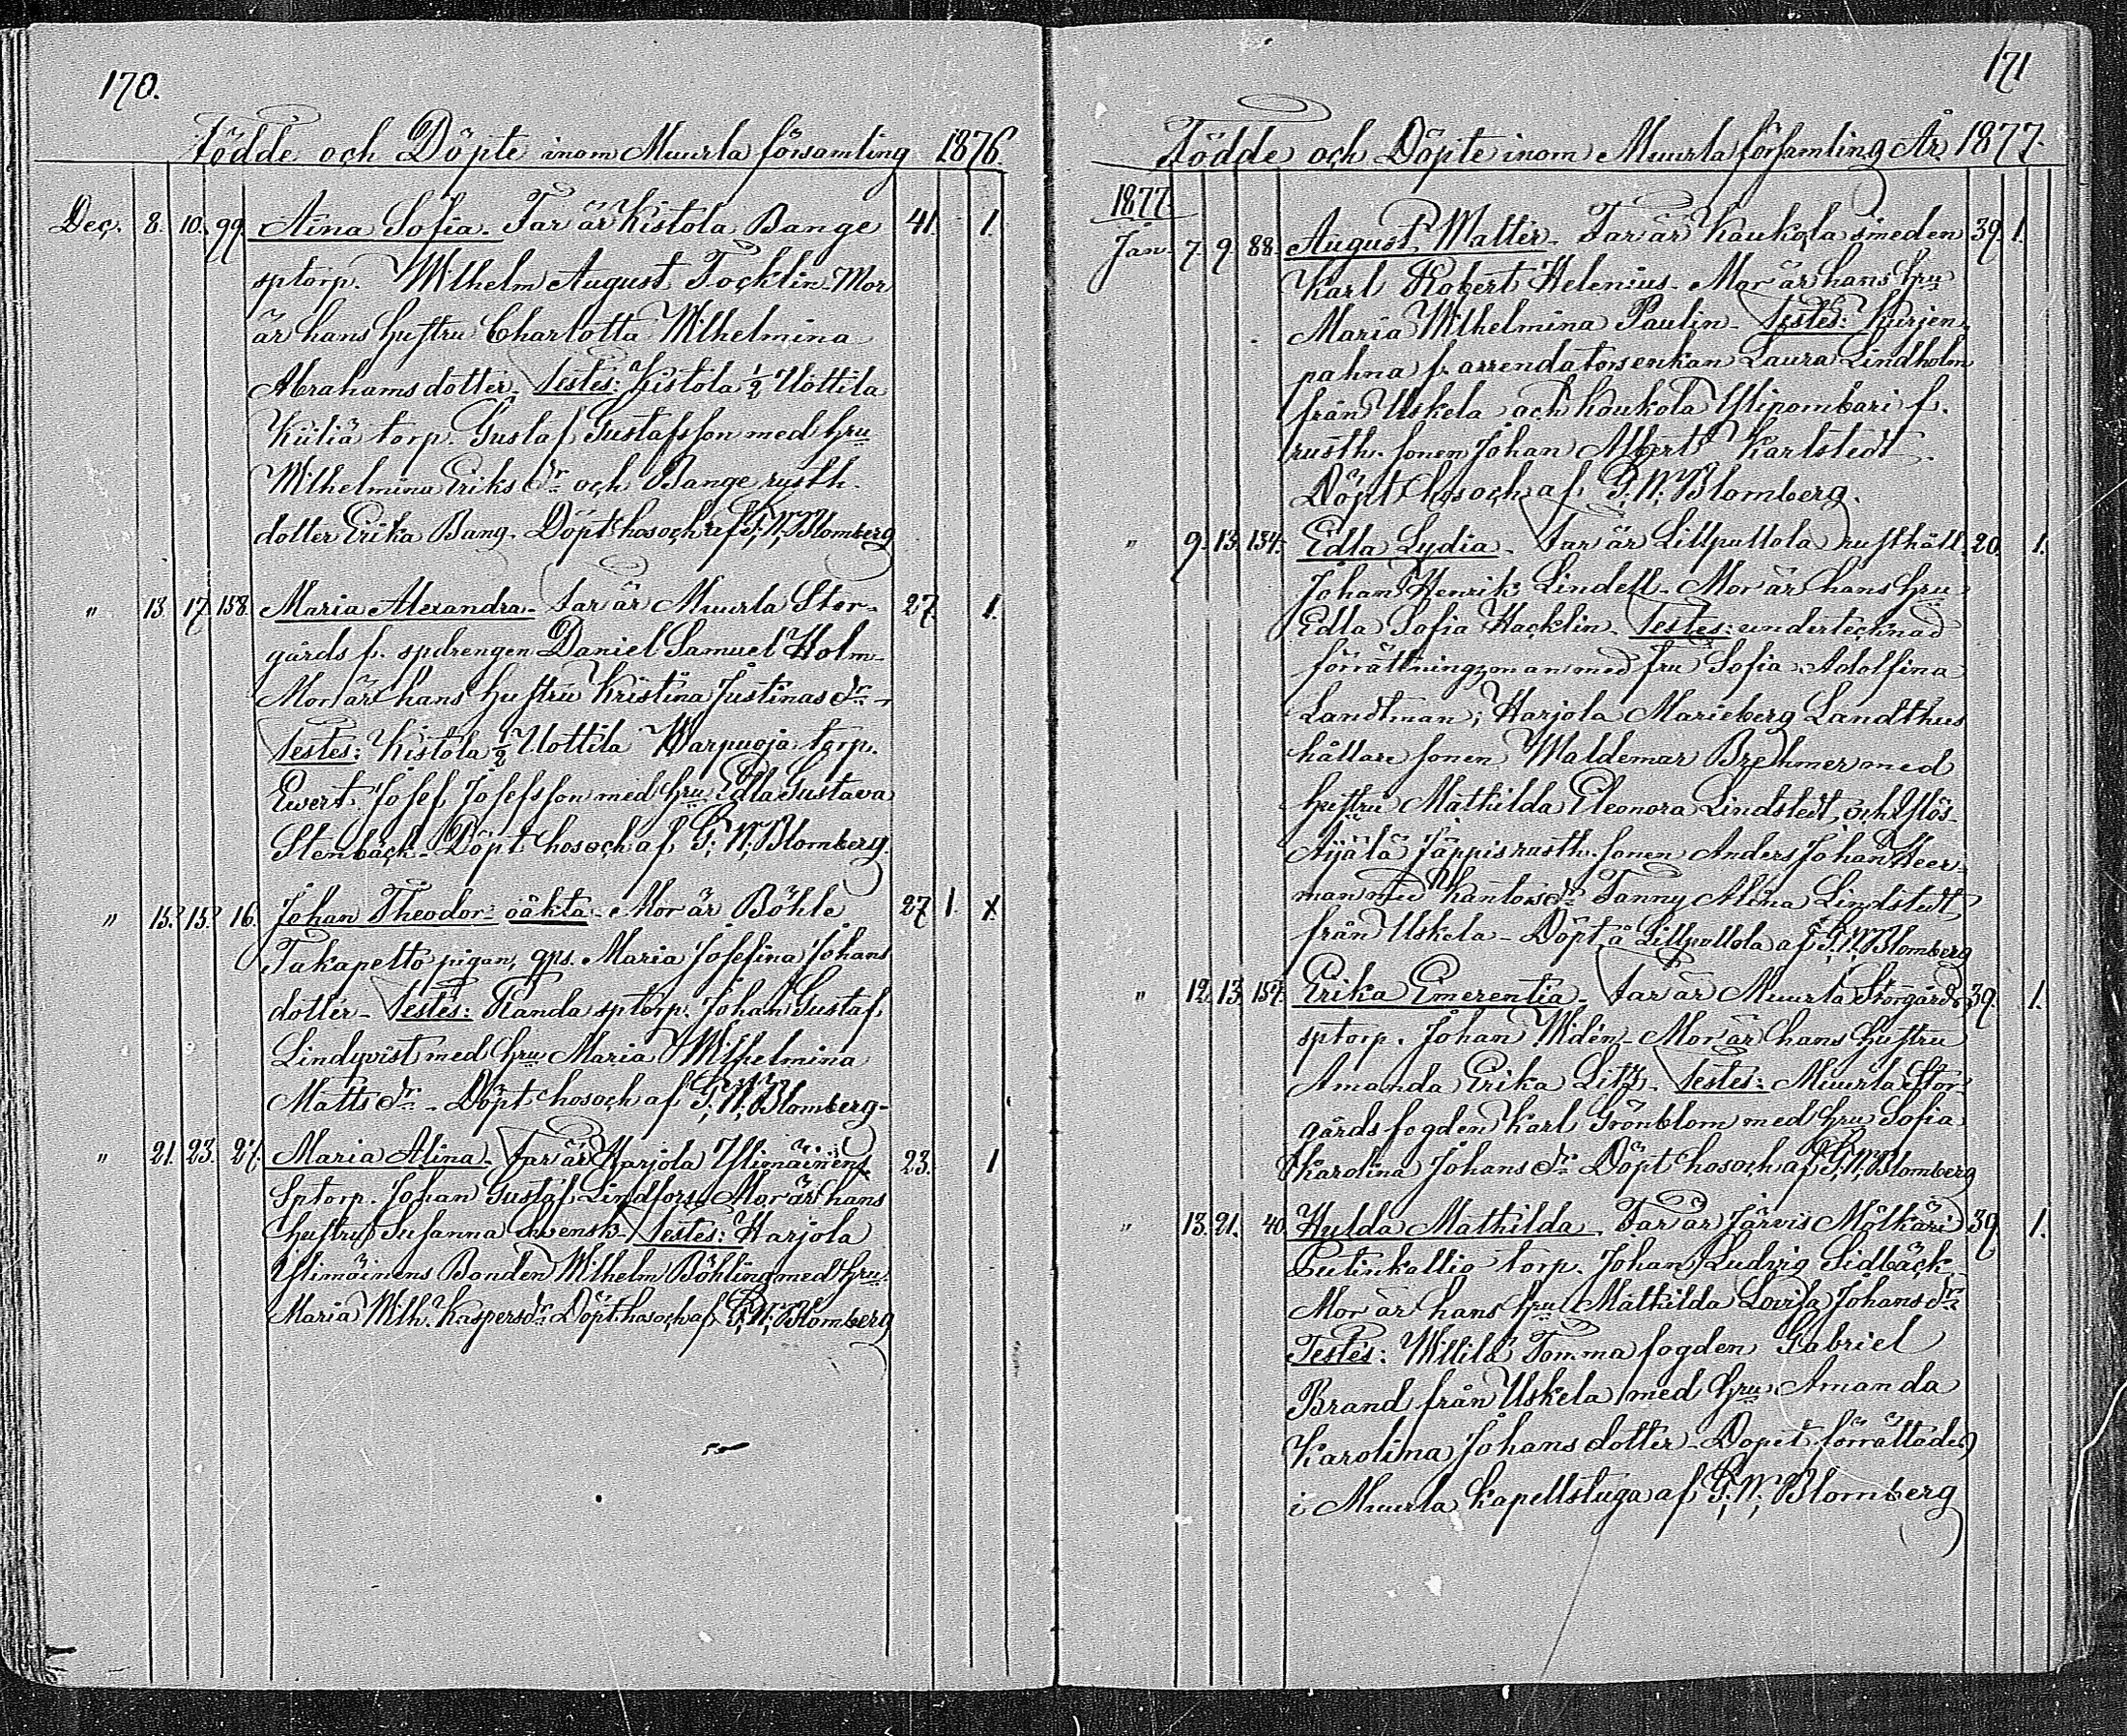 170.
Födde och Döpte inom Muurla församling 1876.
Dec. 8. 10. 99. Aina Sofia. Far är Kistola Bange 41. 1.
sptorp. Wilhelm August Tocklin. Mor
är hans hustru Charlotta Wilhelmina
Abrahamsdotter. Testes: Kistola ½ Uottila
Küliä torp. Gustaf Gustafsson med hru
Wilhelmina Eriksdr och Bange rusth.
dotter Erika Bang. Döpt hos och af G. W. Blomberg
" 13. 17. 158. Maria Alexandra. Far är Muurla Stor- 27. 1.
gårds f. spdrengen Daniel Samuel Holm-
Mor är hans hustru Kristina Justinasdr -
Testes: Kistola ½ Uottila Warpuoja torp.
Evert Josef Josefsson med hru Edla Gustava
Stenbäck. Döpt hos och af G. W. Blomberg.
" 15. 15. 16. Johan Theodor - oäkta - Mor är Böhle 27 1. X
Takapelto pigan, qps. Maria Josefina Johans
dotter - Testes: Randa sptorp. Johan Gustaf
Lindqvist med hru Maria Wilhelmina
Mattsdr - Döpt hos och af G. W. Blomberg -
" 21. 23. 27. Maria Alina. Far är Harjola Ylimäinens 23. 1
Sptorp. Johan Gustaf Lindfors. Mor är hans
hustru Susanna Svensk. Testes: Harjola
Ylimäinens Bonden Wilhelm Böhling med hru
Maria Wilh. Kaspersdr Döpt hos och af G. W. Blomberg
171
Födde och Döpte inom Muurla församling År 1877.
1877.
Jan. 7. 9. 88. August Walter. Far är Kaukola smeden 39. 1.
Karl Robert Helenius. Mor är hans hru
Maria Wilhelmina Paulin. Testes: Kurjen
pahna f. arrendatorsenkan Laura Lindholm
från Uskela och Koukola Ylipombari f.
rusth. sonen Johan Albert Karlstedt.
Döpt hos och af G. W. Blomberg.
" 9. 13. 134. Edla Lydia. Far är Lillpullola rusthåll. 20. 1.
Johan Henrik Lindell. Mor är hans hru
Edla Sofia Hacklin. Testes: undertecknad
förrättningsman med fru Sofia Adolfina
Landtman; Harjola Marieberg Landthus
hållare sonen Waldemar Brehmer med
hustru Mathilda Eleonora Lindstedt, och Ylös-
Äijälä Jäppis rusth. sonen Anders Johan Heer-
man med Kantorsdr Fanny Alina Lindstedt
från Uskela - Döpt å Lillpullola af G. W. Blomberg
" 12. 13. 157. Erika Emerentia - Far är Muurla Storgårds 39. 1.
sptorp. Johan Widén - Mor är hans hustru
Amanda Erika Litz. Testes: Muurla Stor-
gårds fogden Karl Grönblom med hru Sofia
Karolina Johansdr Döpt hos och af G. W. Blomberg
" 13. 21. 40. Hulda Mathilda. Far är Järvis Mölkäri 39. 1.
Putinkallio torp. Johan Ludvig Lidbäck.
Mor är hans hru Mathilda Lovisa Johansdr
Testes: Willilä Tomma fogden Gabriel
Brand från Uskela med hru Amanda
Karolina Johansdotter - Dopet förrättades
i Muurla Kapellstuga af G. W. Blomberg